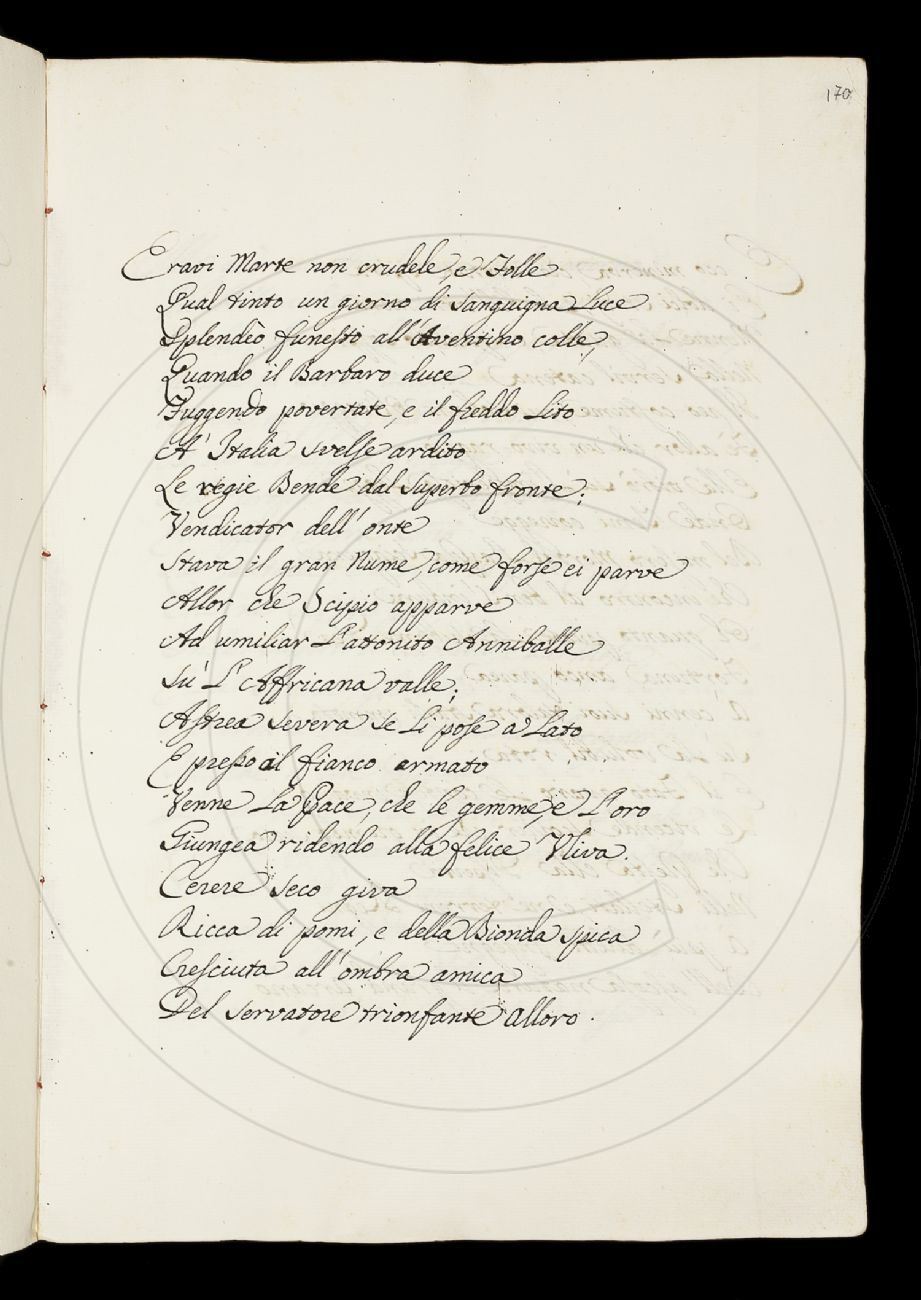 170
Eravi Marte non crudele, e Folle
Qual tinto un giorno di sanguigna Luce
Splendèo funesto all'Aventino colle,
Quando il Barbaro duce
Fuggendo povertate, e il freddo Lito
A' Italia svelse ardito
Le regie Bende dal superbo fronte;
Vendicator dell'onte
Stava il gran Nume, come forse ei parve
Allor, che Scipio apparve
Ad umiliar L'attonito Anniballe
Su' L'Affricana valle;
Astrea severa se Li pose a Lato
E presso al fianco armato
Venne La Pace, che le gemme, e L'oro
Giungea ridendo alla felice Vliva.
Cerere seco giva
Ricca di pomi, e della Bionda spica
Cresciuta all'ombra amica
Del servatore trionfante alloro.